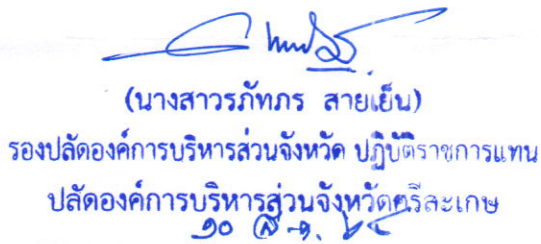 (นางสาวรภัทภร สายเย็น)
รองปลัดองค์การบริหารส่วนจังหวัด ปฏิบัติราชการแทน
ปลัดองค์การบริหารส่วนจังหวัดศรีสะเกษ
๑๐ ส.ค. ๖๔